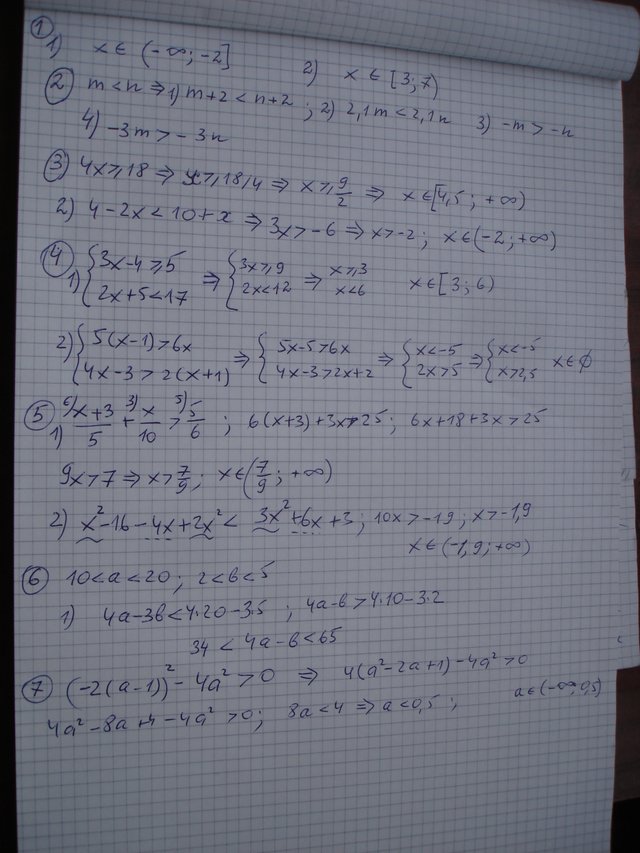 ① 1) x ∈ (-∞; -2] 2) x ∈ [3; 7)
② m < n ⇒ 1) m+2 < n+2 ; 2) 2,1m < 2,1n 3) -m > -n
4) -3m > -3n
③ 4x ≥ 18 ⇒ x ≥ 18/4 ⇒ x ≥ 9/2 ⇒ x ∈ [4,5 ; +∞)
2) 4 - 2x < 10 + x ⇒ 3x > -6 ⇒ x > -2 ; x ∈ (-2; +∞)
④ 1) { 3x-4 ≥ 5 ; 2x+5 < 17 ⇒ { 3x ≥ 9 ; 2x < 12 ⇒ x ≥ 3 ; x < 6 x ∈ [3; 6)
2) { 5(x-1) > 6x ; 4x-3 > 2(x+1) ⇒ { 5x-5 > 6x ; 4x-3 > 2x+2 ⇒ { x < -5 ; 2x > 5 ⇒ { x < -5 ; x > 2,5 x ∈ ∅
⑤ 1) 6) (x+3)/5 + 3) x/10 > 5) 5/6 ; 6(x+3)+3x > 25 ; 6x+18+3x > 25
9x > 7 ⇒ x > 7/9 ; x ∈ (7/9 ; +∞)
2) x² - 16 - 4x + 2x² < 3x² + 6x + 3 ; 10x > -19 ; x > -1,9
x ∈ (-1,9; +∞)
⑥ 10 < a < 20 ; 2 < b < 5
1) 4a-3b < 4·20-3·5 ; 4a-b > 4·10-3·2
34 < 4a-b < 65
⑦ (-2(a-1))² - 4a² > 0 ⇒ 4(a²-2a+1) - 4a² > 0
4a² - 8a + 4 - 4a² > 0 ; 8a < 4 ⇒ a < 0,5 ; a ∈ (-∞; 0,5)